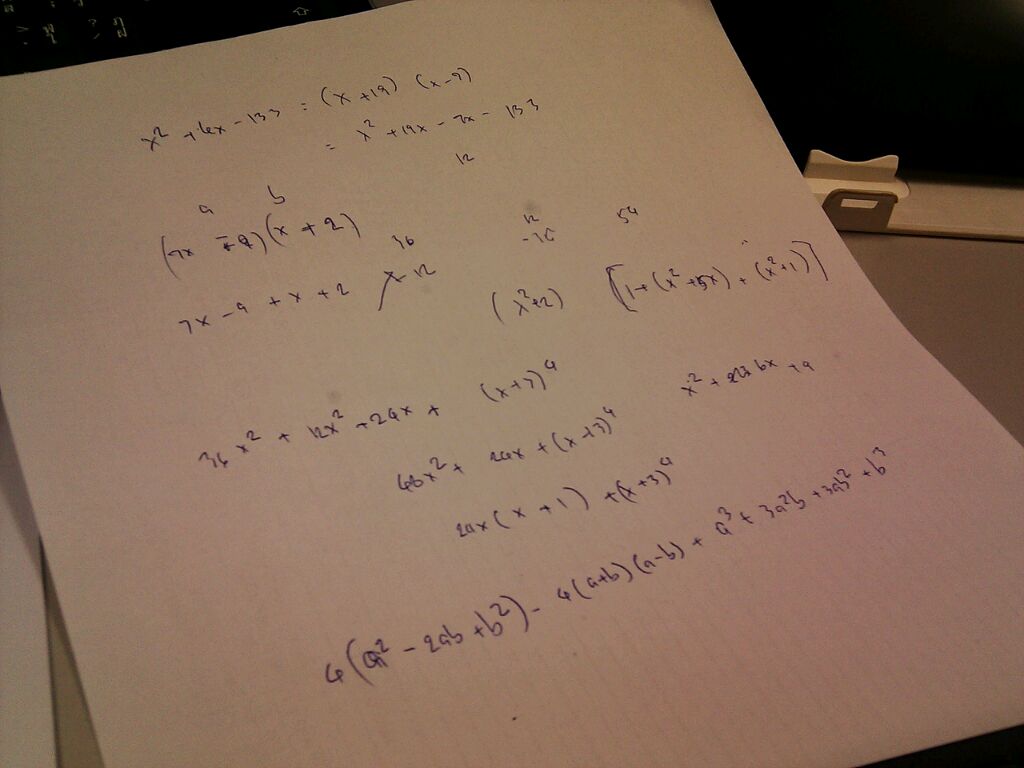 x² + 6x - 133 = (x + 19) (x - 7)
= x² + 19x - 7x - 133
12
a b
(7x - 9)(x + 2)
36 12 54
-36
7x - 9 + x + 2 x - 12
(x² + 2) [1 + (x² + 5x) + (x² + 1)]
36x² + 12x² + 24x + (x + 3)⁴
x² + bx + 9
48x² + 24x + (x + 3)⁴
24x(x + 1) + (x + 3)⁴
4(a² - 2ab + b²) - 4(a+b)(a-b) + a³ + 3a²b + 3ab² + b³